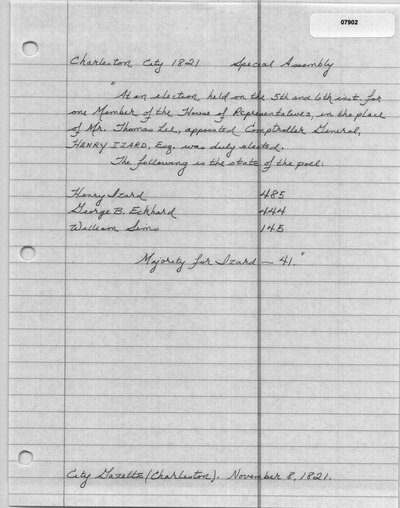 07902
Charleston City 1821 Special Assembly
"At an election held on the 5th and 6th inst. for
one Member of the House of Representatives, in the place
of Mr. Thomas Lee, appointed Comptroller General,
HENRY IZARD, Esq. was duly elected.
The following is the state of the poll:
Henry Izard 485
George B. Eckhard 444
William Sims 145
Majority for Izard — 41."
City Gazette (Charleston). November 8, 1821.